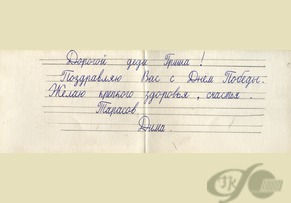 Дорогой дядя Гриша!
Поздравляю Вас с Днем Победы.
Желаю крепкого здоровья, счастья.
Тарасов
Дима.